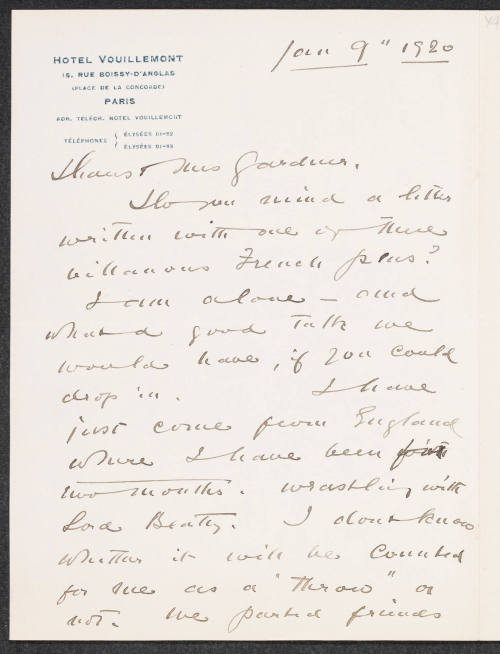 HOTEL VOUILLEMONT
15, RUE BOISSY-D'ANGLAS
(PLACE DE LA CONCORDE)
PARIS
ADR. TÉLÉGR. HOTEL VOUILLEMONT
TÉLÉPHONES { ÉLYSÉES 01-92
ÉLYSÉES 01-93
Jan 9" 1920
Mrs Gardner.
Do you mind a letter
written with one of these
villanous French pens?
I am alone – and
what a good talk we
would have, if you could
drop in. I have
just come from England
where I have been for
two months. wrastling with
Lord Beatty. I dont know
whether it will be counted
for me as a "throw" or
not. We parted friends